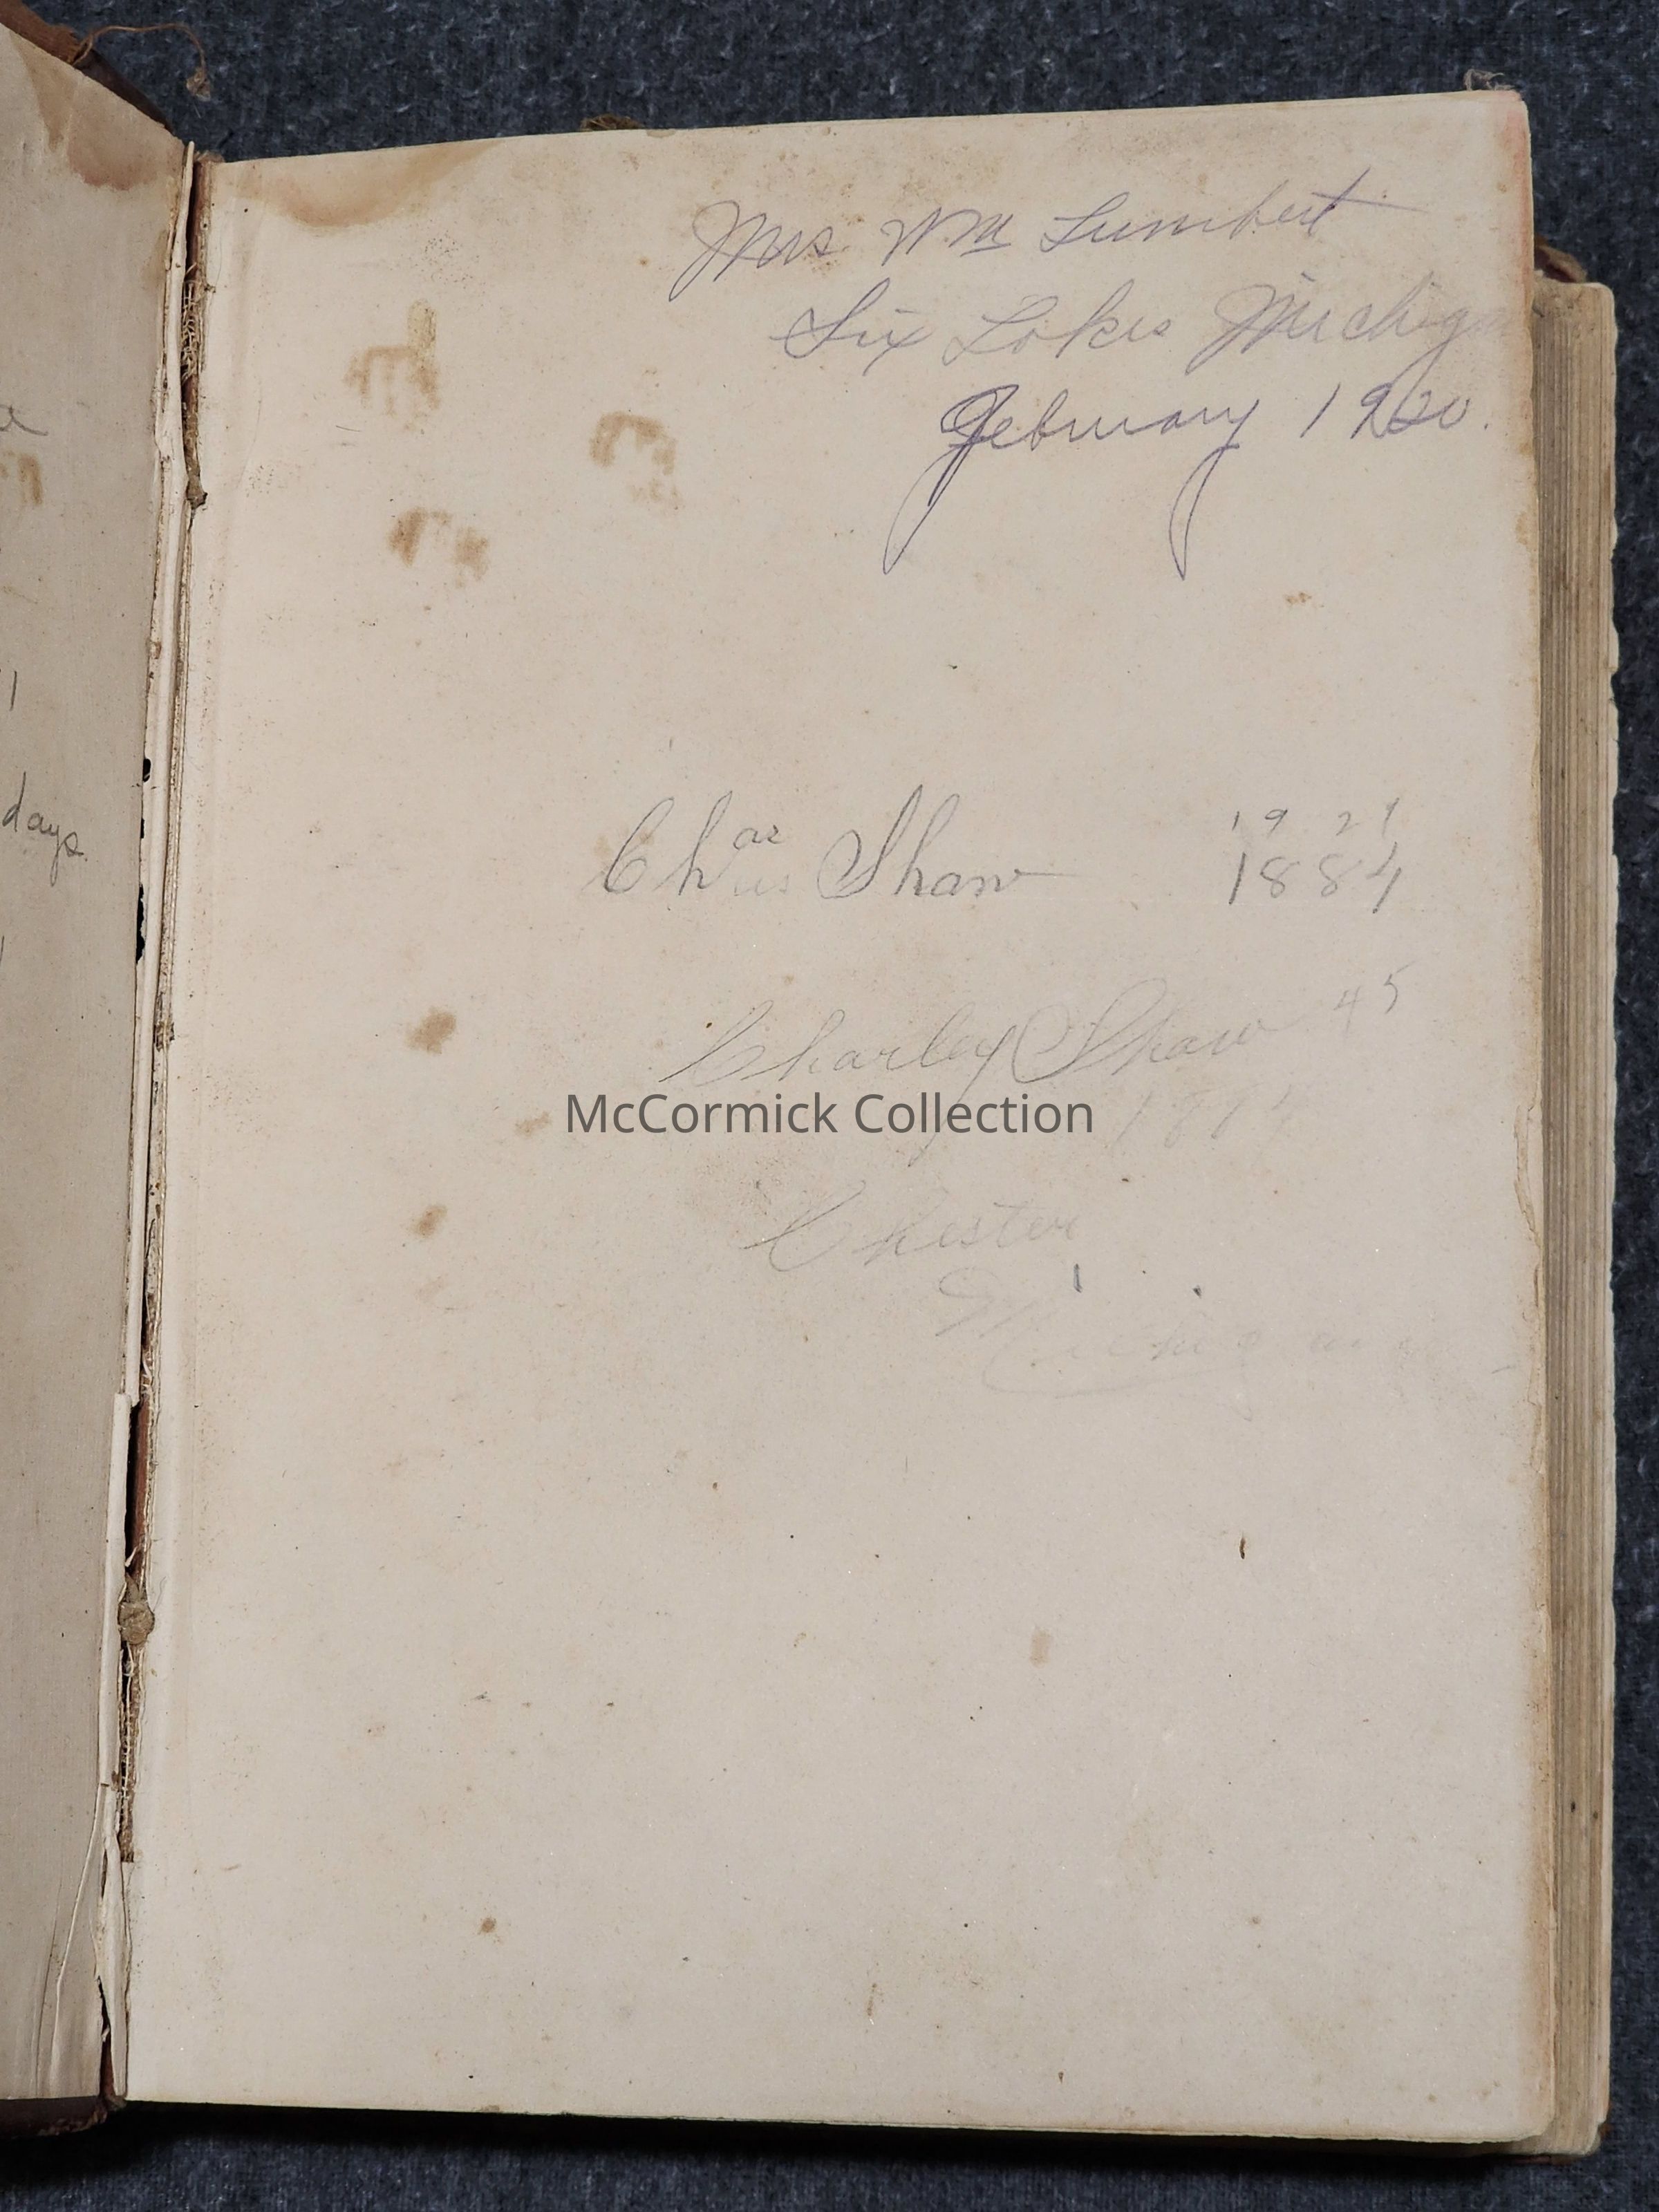 Mrs Wm Lumbert
Six Lakes Michigan
February 1920.
days
19 21
Chas Shaw 1884
45
Charley Shaw
McCormick Collection
Chester
Michigan